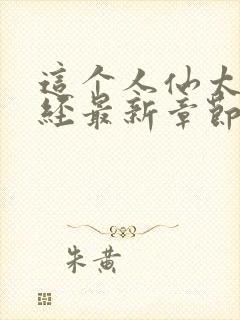 這个人仙太
經最新章節
朱黄